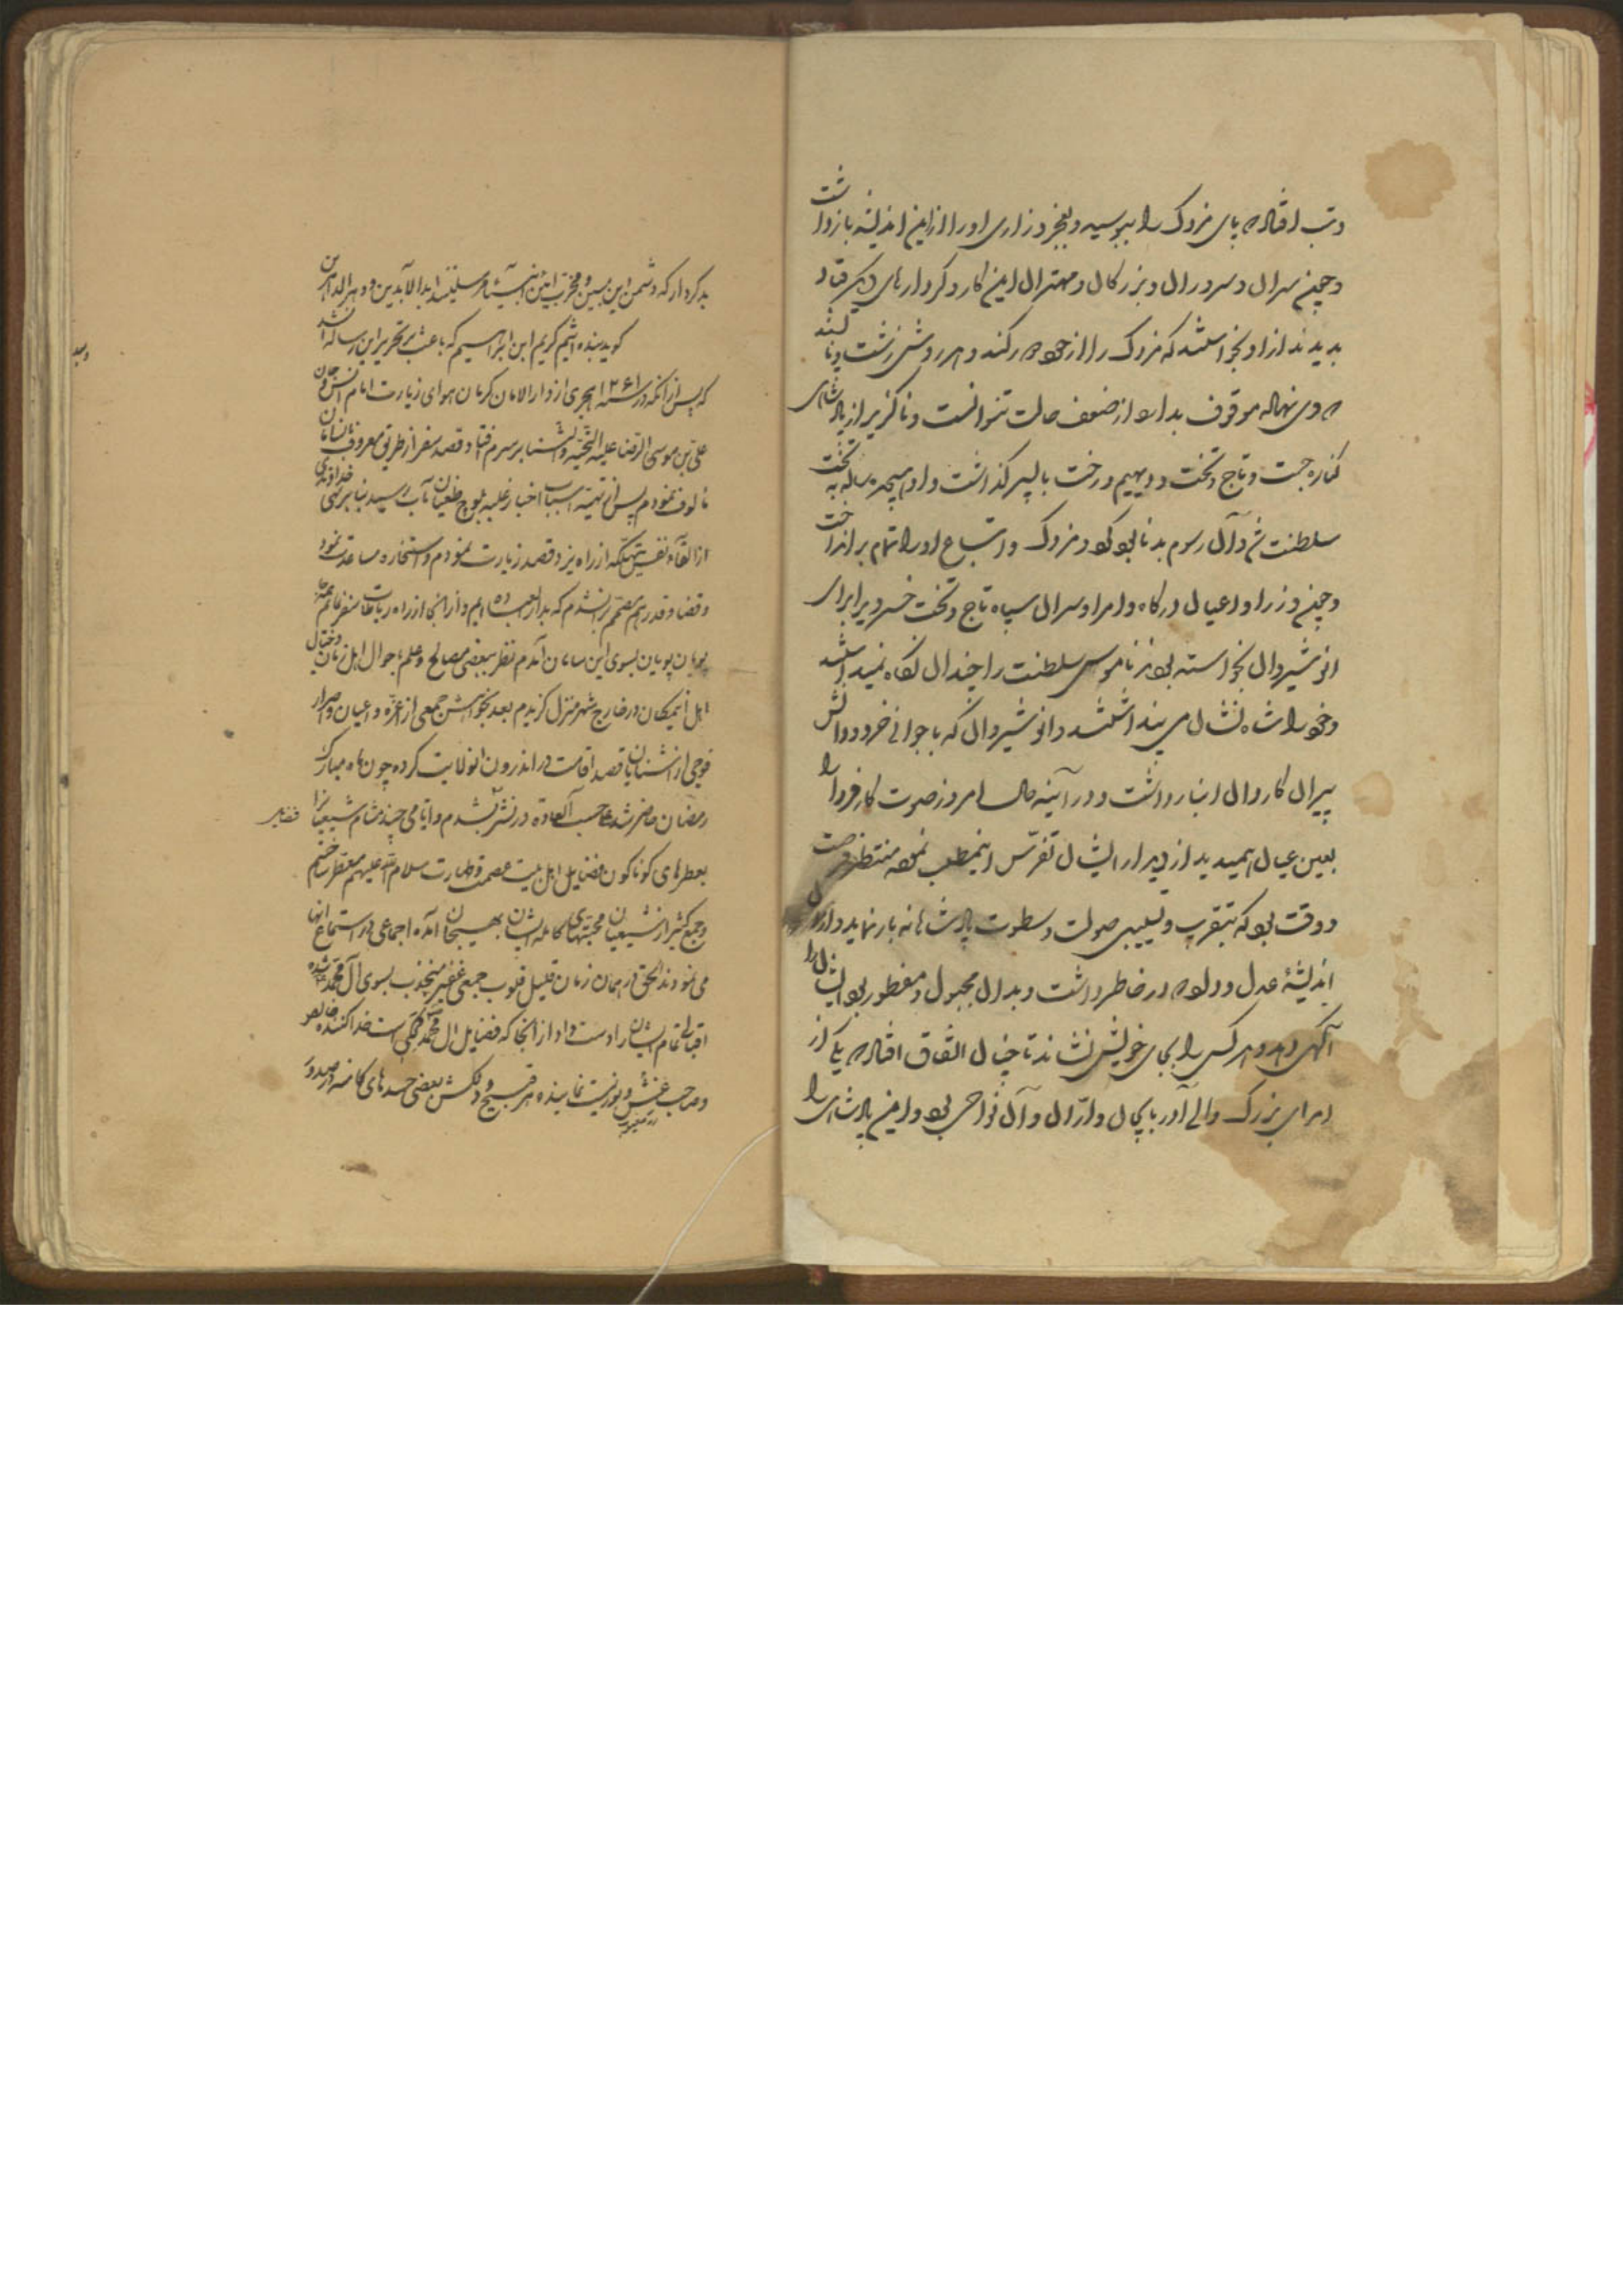 و تب افتاده پای مزدک را ببوسید و بعجز و زاری او را از این اندیشه بازداشت
و چون سران و سروران و بزرگان و مهتران این کار و کردارهای دیگر قباد
بدیدند از او بخواستند که مزدک را از خود دور کند و هر روش زشت و ناپسند
وی نهاده موقوف بدارد از ضعف حالت نتوانست و ناگزیر از پادشاهی
کناره جست و تاج و تخت و دیهیم و رخت با پسر گذاشت و او هیجده ساله به تخت
سلطنت و آن رسوم بد نابود کرد و مزدک و اتباع او را تمام برانداخت
و چون وزرا و اعیان درگاه و امرا و سران سپاه تاج و تخت خسروی را برای
انوشیروان بخواسته بودند ناموس سلطنت را چندان نگاه نمیداشتند
و خود را شاه نشان می پنداشتند و انوشیروان که با جوانی خرد و دانش
پیران کاردان انبار داشت و در آینه حال امروز صورت کار فردا را
بعین عیان همیدید از دیدار ایشان تفرّس اینمطلب نموده منتظر فرصت
و وقت بود که بتقریب و تسبیبی صولت و سطوت پادشاهانه باز نماید و از آن
اندیشهٔ عدل و داد که در خاطر داشت و بدان مجبول و مفطور بود ایشان را
آگهی دهد و هر کس را بجای خویش نشاند تا چنان اتفاق افتاد که یکی از
امرای بزرگ والی آذربایجان و ارّان و آن نواحی بود و این پادشاهی را
بدکردار که دشمن این مبین و مخرب آئین انبیاء و مرسلینند ابد الآبدین و دهر الداهرین
گوید بنده اثیم کریم ابن ابراهیم که باعث بر تحریر این رساله آن شد
که پس از آنکه در سنه ۱۲۶۱ هجری از دار الامان کرمان هوای زیارت امام انس و جان
علی بن موسی الرضا علیه التحیة و الثناء بر سرم فتاد و قصد سفر از طریق معروف
مألوف نمودم پس از تهیه اسباب اخبار غلبه بلوچ طغیان مآب رسید بنا بر نهی خداوندی
از القاء نفس بتهلکه از راه یزد قصد زیارت نمودم و استخاره مساعدت نمود
و قضا و قدر هم مصمم بر آن شدم که بدار العباده ایم و از آنجا از راه رباطات سفر نمایم
پویان پویان بسوی این سامان آمدم نظر ببعضی مصالح و علم باحوال اهل زمان و خیال
اهل اینمکان در خارج شهر منزل گزیدم بعد بخواهش جمعی از اعزّه و اعیان و اصرار
فوجی از آشنایان قصد اقامت در اندرون انولایت کرده چون ماه مبارک
رمضان حاضر شد حسب العاده در نشر شدم و ایامی چند مشام شیعیان را
فضایل
بعطرهای گوناگون فضایل اهل بیت عصمت و طهارت سلام الله علیهم معطر ساختم
و جمع کثیر از شیعیان محبتهای کامله ایشان بهیجان آمده اجماعی در استماع آنها
می نمودند الحق در همان زمان قلیل قلوب جمعی غفیر منجذب بسوی آل محمد شده
اقبال تمام ایشان را دست داد از آنجا که فضایل آل محمد محکی است جدا کننده خالص
و صاحب غش و نوریست نماینده هر قبیح و دلکش بعضی حسدهای کامنه در صدور